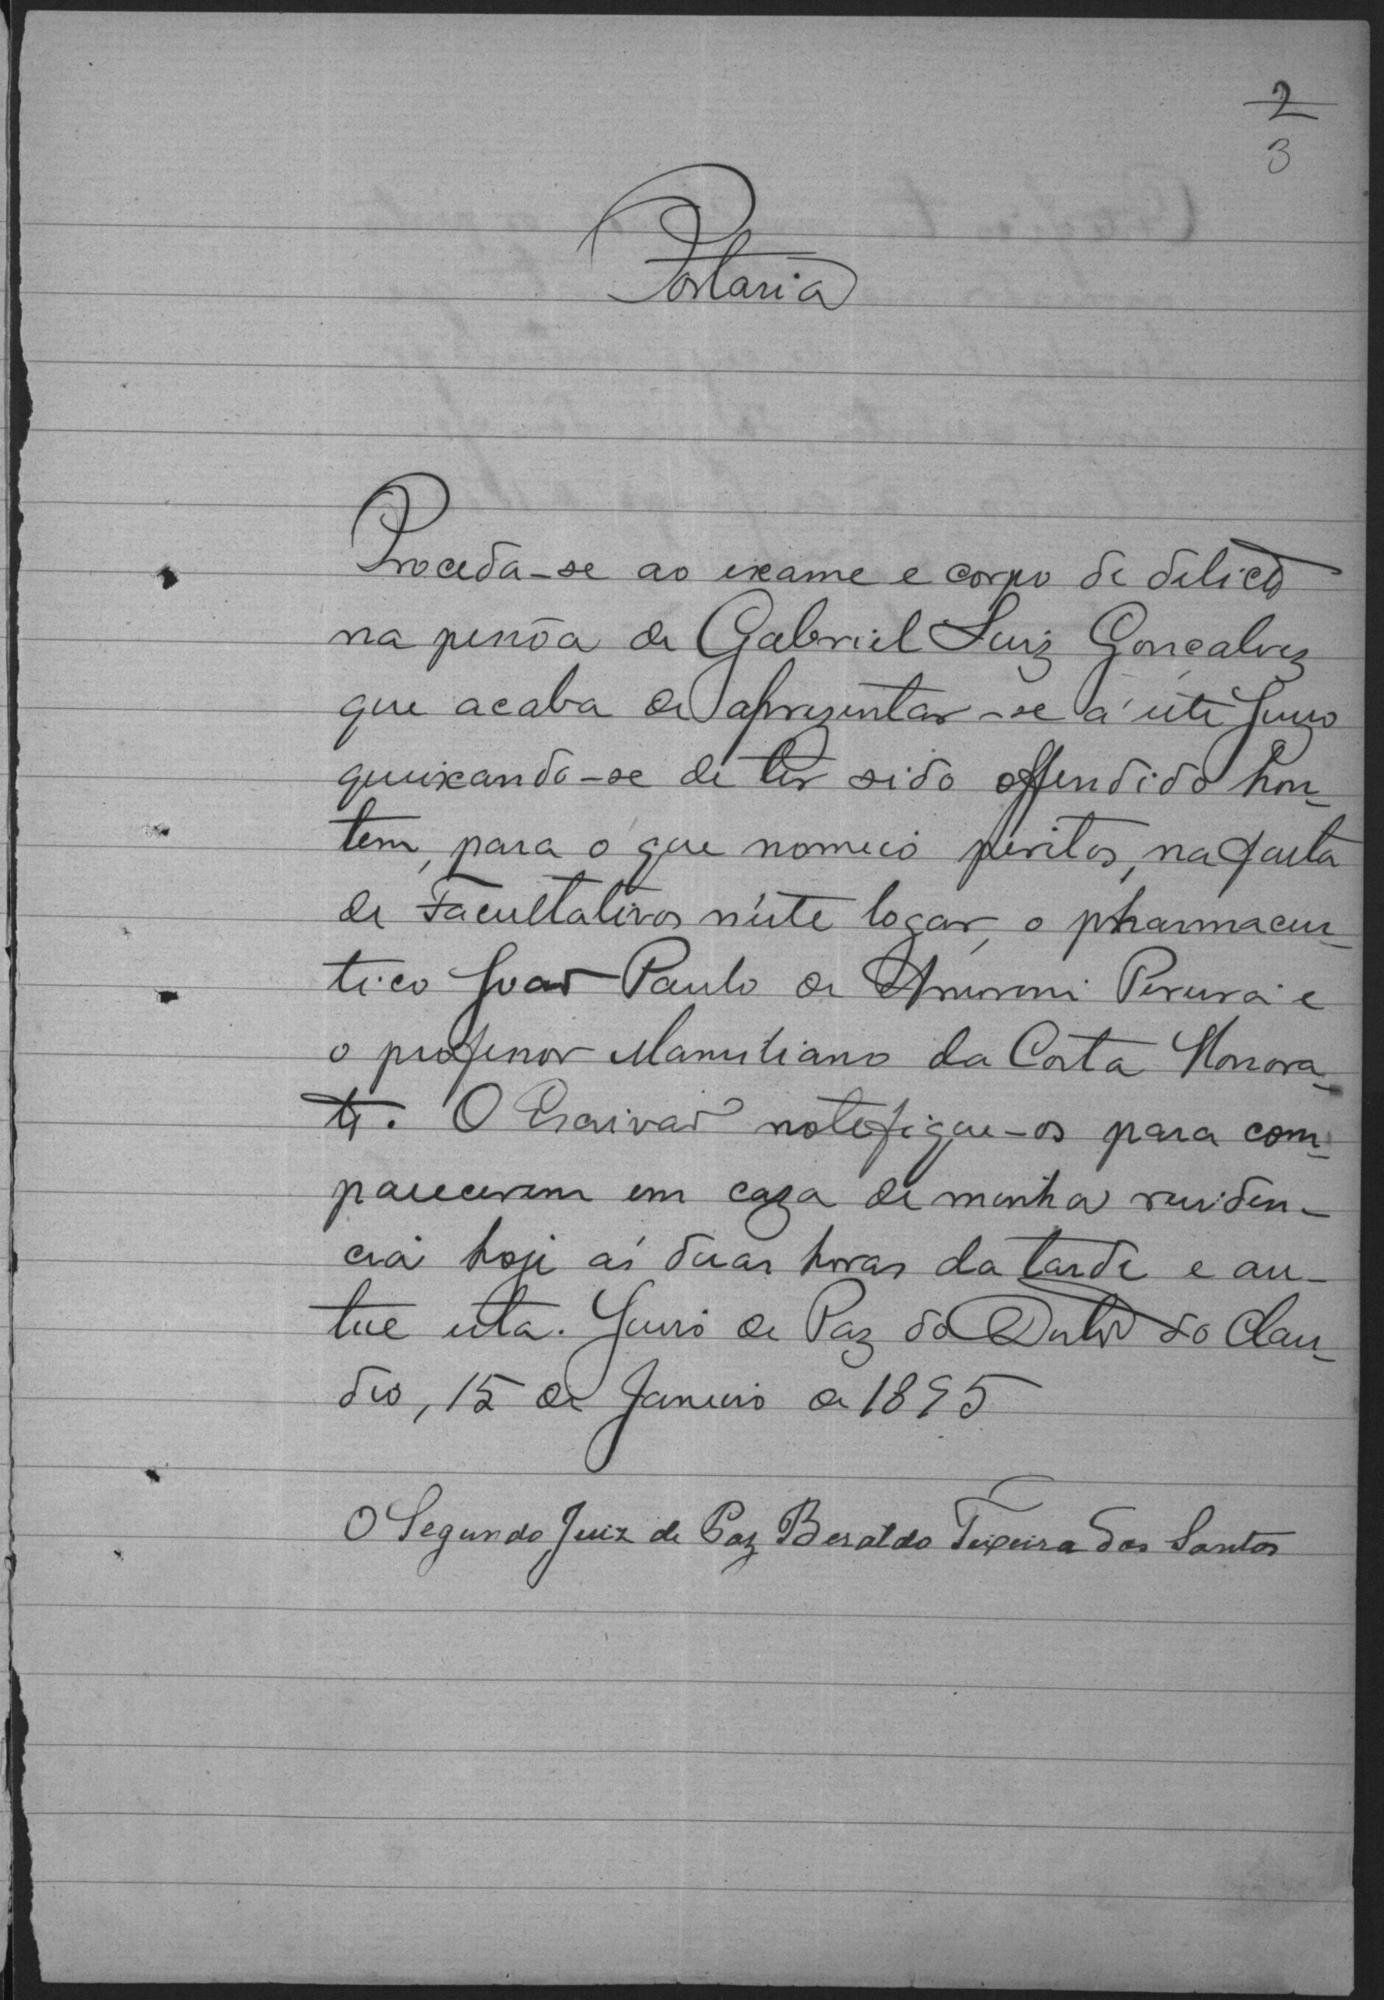 2
3
Portaria
Proceda-se ao exame e corpo de delicto
na pessôa de Gabriel Luiz Gonçalvez
que acaba de aprezentar-se á este Juizo
queixando-se de ter sido offendido hon-
tem, para o que nomeio peritos, na falta
de Facultativos n'este logar, o pharmaceu-
tico João Paulo de Amorim Pereira e
o professor Mamiliano da Costa Honora-
to. O Escrivão notefique-os para com-
parecerem em caza de minha residen-
cia hoje as duas horas da tarde e au-
tue esta. Juizo de Paz do do Clau-
dio, 15 de Janeiro de 1895
O Segundo Juiz de Paz Beraldo Teixeira dos Santos